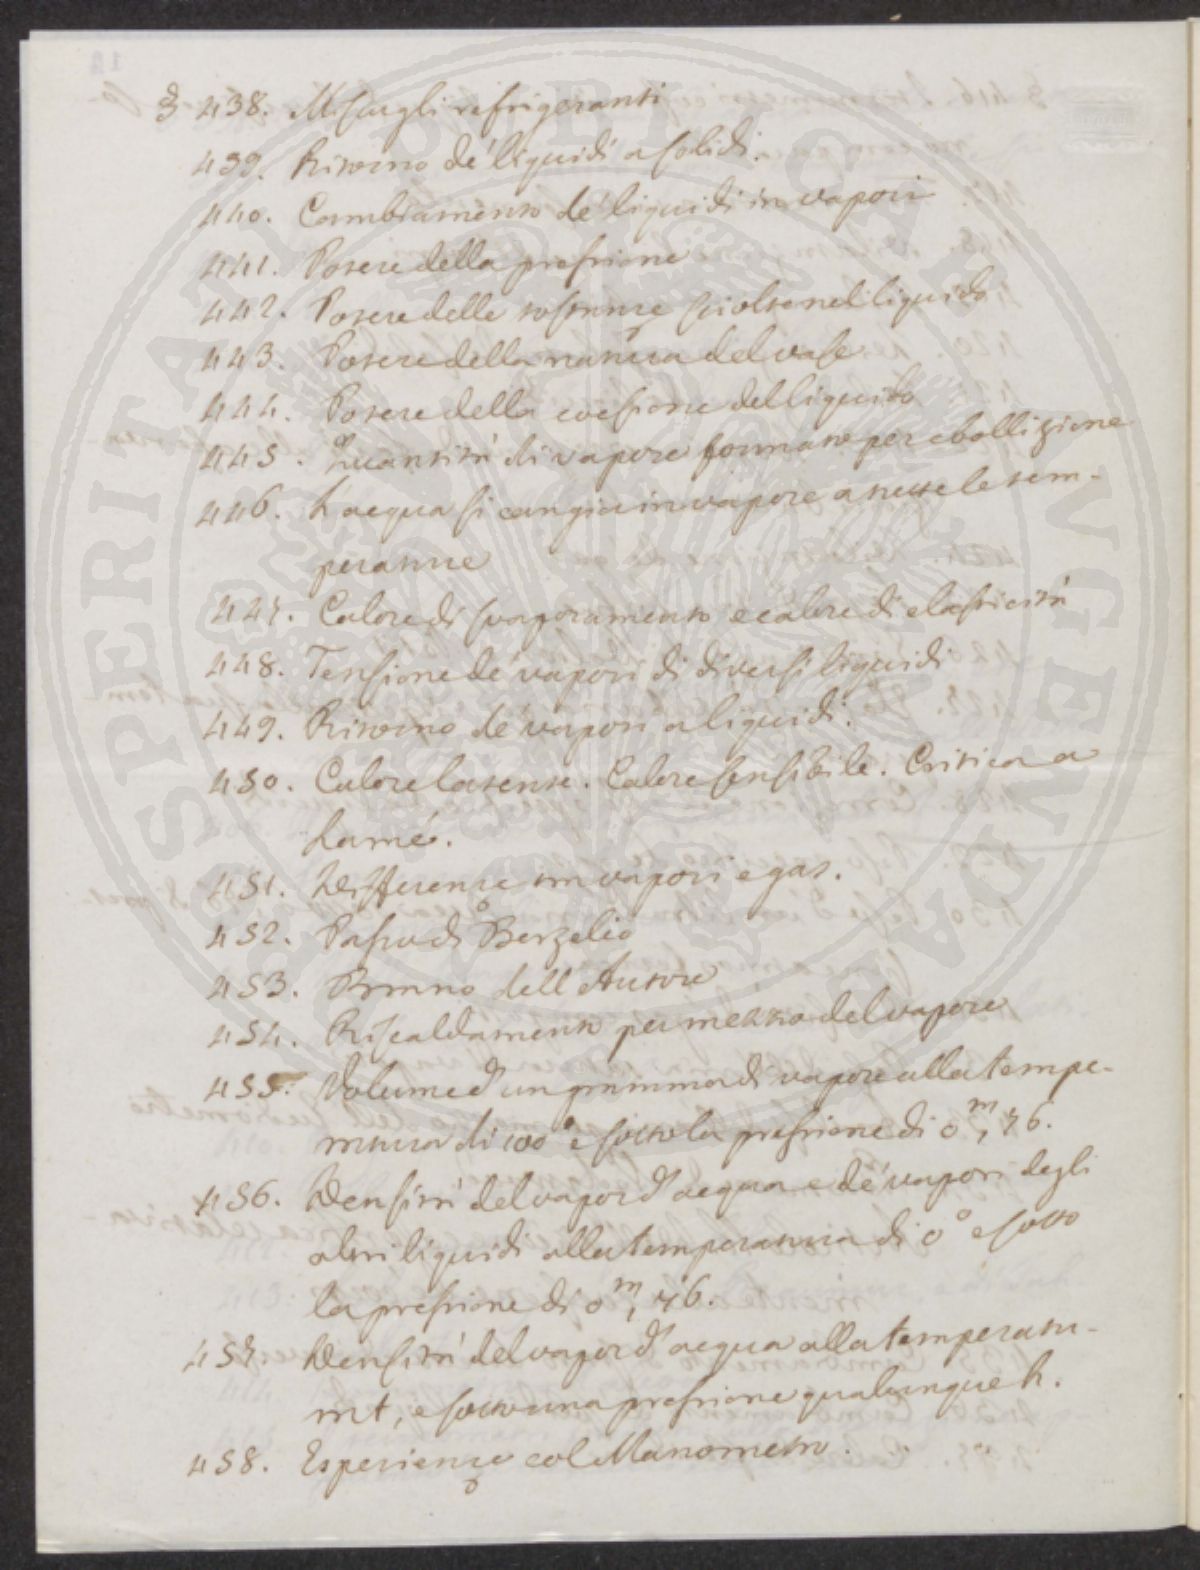 § 438. Miscugli refrigeranti
439. Ritorno de' liquidi a solidi.
440. Cambiamento de' liquidi in vapori
441. Potere della pressione
442. Potere delle sostanze sciolte nel liquido
443. Potere della natura del vase
444. Potere della coesione del liquido
445. Quantità di vapore formato per ebollizione
446. L'acqua si cangia in vapore a tutte le tem-
perature
447. Calore di svaporamento e calore di elasticità
448. Tensione de' vapori di diversi liquidi
449. Ritorno de' vapori a liquidi.
450. Calore latente. Calore sensibile. Critica a
Lamé.
451. Differenze tra vapori e gas.
452. Passo di Berzelio
453. Brano dell'Autore
454. Riscaldamento per mezzo del vapore
455. Volume d'un gramma di vapore alla tempe-
ratura di 100° e sotto la pressione di 0^m, 76.
456. Densità del vapor d'acqua e de' vapori degli
altri liquidi alla temperatura di 0° e sotto
la pressione di 0^m, 76.
457. Densità del vapor d'acqua alla temperatu-
ra t, e sotto una pressione qualunque h.
458. Esperienze col Manometro.
PERITATI PUBLICAE AUGENDAE